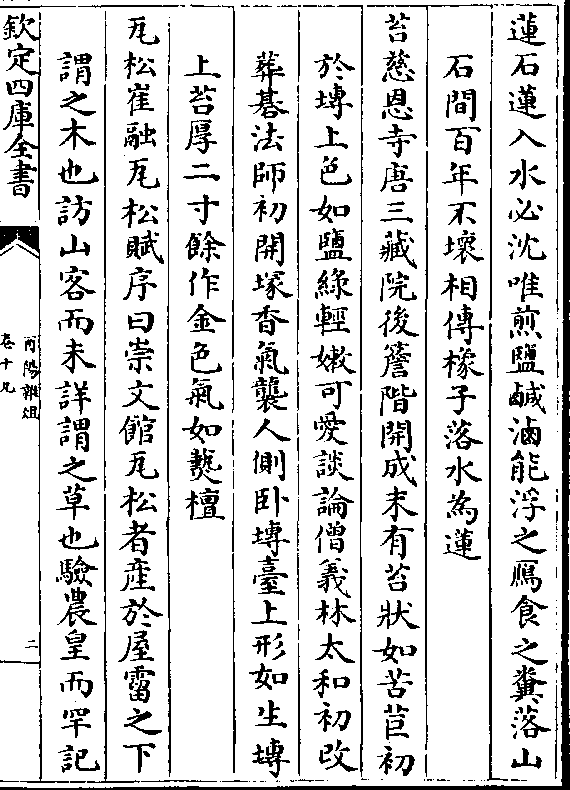 蓮石蓮入水必沈唯煎鹽鹹滷能浮之鴈食之糞落山
石間百年不壞相傳橡子落水為蓮
苔慈恩寺唐三藏院後簷階開成末有苔狀如苦苣初
於塼上色如鹽綠輕嫩可愛談論僧義林太和初改
葬棊法師初開塚香氣襲人側卧塼臺上形如生塼
上苔厚二寸餘作金色氣如爇檀
瓦松崔融瓦松賦序曰崇文館瓦松者産於屋霤之下
謂之木也訪山客而未詳謂之草也驗農皇而罕記
欽定四庫全書
酉陽雜俎
卷十九
二